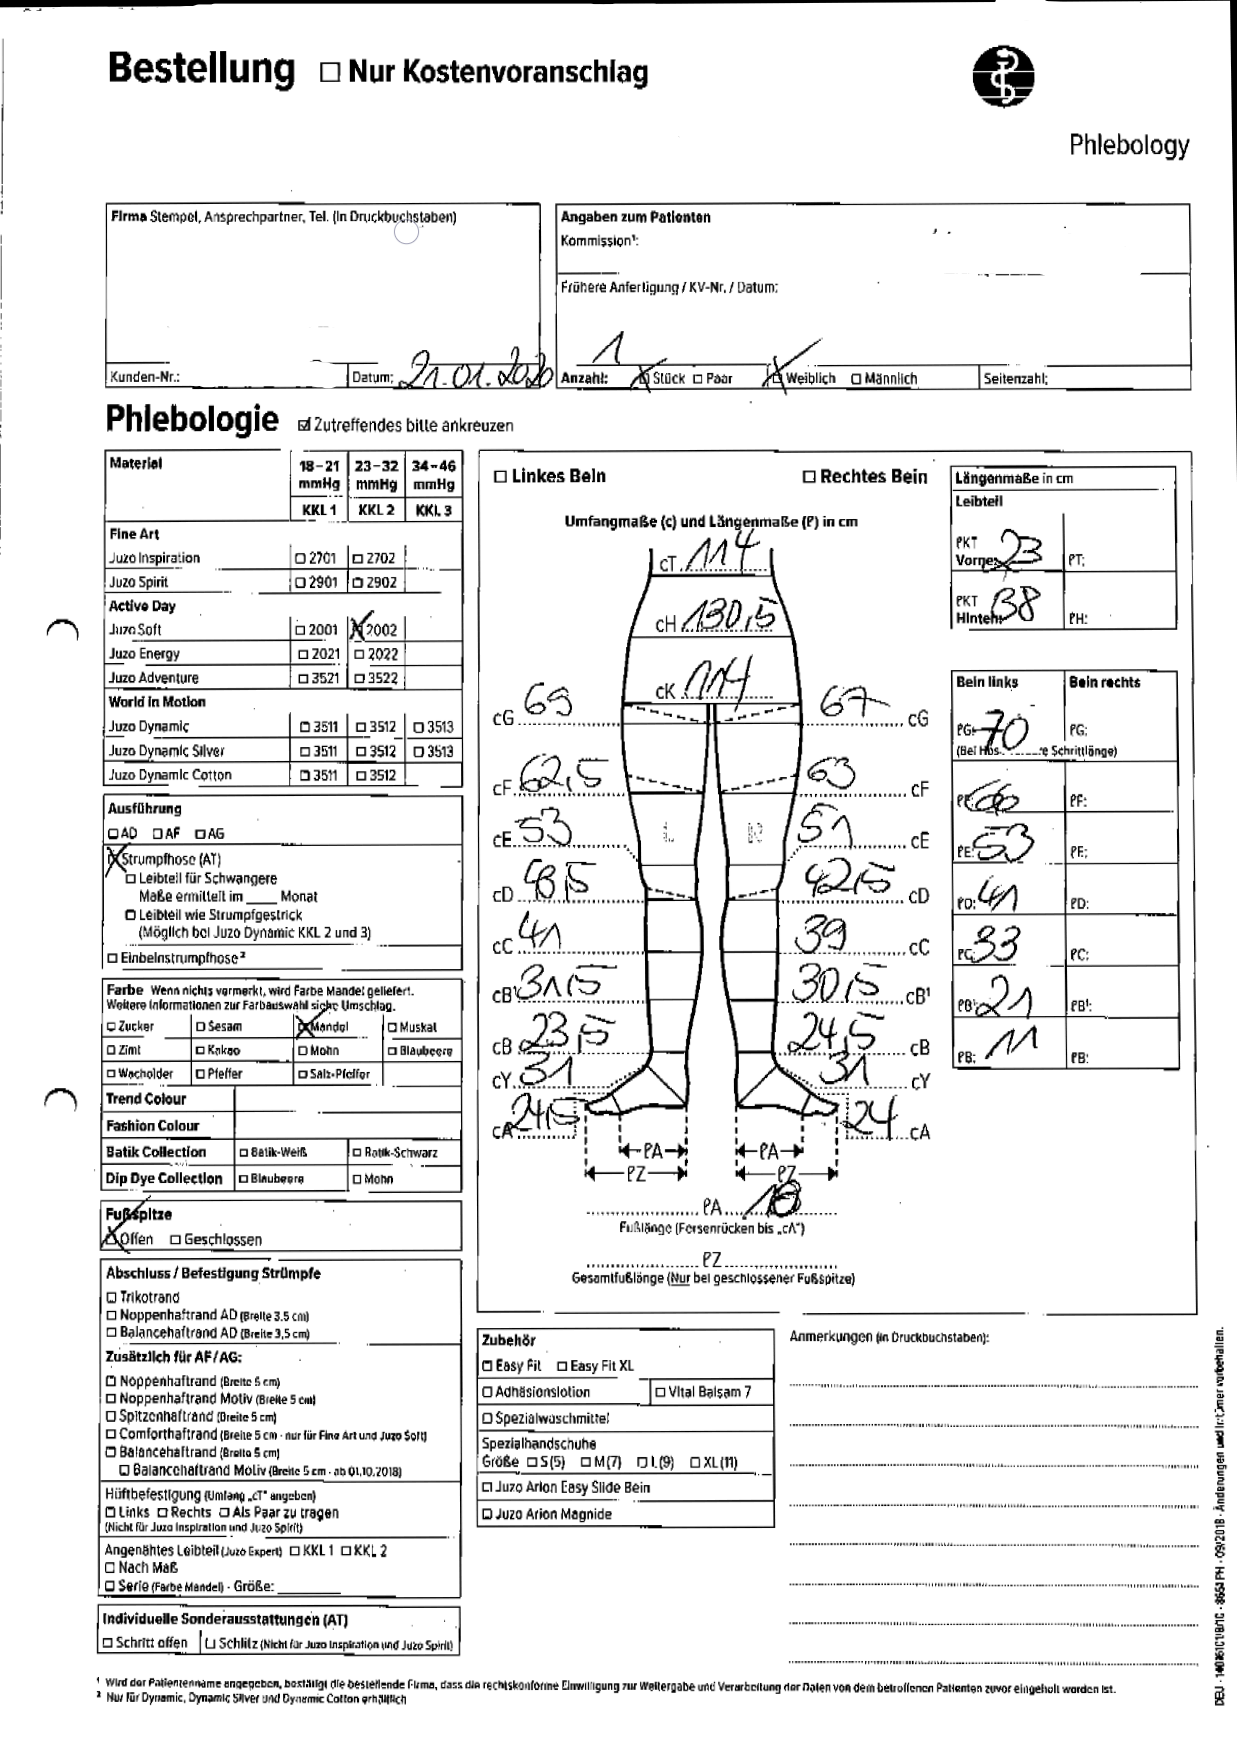 Bestellung ☐ Nur Kostenvoranschlag
Phlebology
Firma Stempel, Ansprechpartner, Tel. (in Druckbuchstaben)
Kunden-Nr.:
Datum: 21.01.2020
Angaben zum Patienten
Kommission¹:
Frühere Anfertigung / KV-Nr. / Datum:
Anzahl: 1 ☒ Stück ☐ Paar ☒ Weiblich ☐ Männlich Seitenzahl:
Phlebologie ☑ Zutreffendes bitte ankreuzen
Material 18–21 mmHg 23–32 mmHg 34–46 mmHg
KKL 1 KKL 2 KKL 3
Fine Art
Juzo Inspiration ☐ 2701 ☐ 2702
Juzo Spirit ☐ 2901 ☐ 2902
Active Day
Juzo Soft ☐ 2001 ☒ 2002
Juzo Energy ☐ 2021 ☐ 2022
Juzo Adventure ☐ 3521 ☐ 3522
World in Motion
Juzo Dynamic ☐ 3511 ☐ 3512 ☐ 3513
Juzo Dynamic Silver ☐ 3511 ☐ 3512 ☐ 3513
Juzo Dynamic Cotton ☐ 3511 ☐ 3512
Ausführung
☐ AD ☐ AF ☐ AG
☒ Strumpfhose (AT)
☐ Leibteil für Schwangere
Maße ermittelt im ____ Monat
☐ Leibteil wie Strumpfgestrick
(Möglich bei Juzo Dynamic KKL 2 und 3)
☐ Einbeinstrumpfhose²
Farbe Wenn nichts vermerkt, wird Farbe Mandel geliefert.
Weitere Informationen zur Farbauswahl siehe Umschlag.
☐ Zucker ☐ Sesam ☒ Mandel ☐ Muskat
☐ Zimt ☐ Kakao ☐ Mohn ☐ Blaubeere
☐ Wacholder ☐ Pfeffer ☐ Salz-Pfeffer
Trend Colour
Fashion Colour
Batik Collection ☐ Batik-Weiß ☐ Batik-Schwarz
Dip Dye Collection ☐ Blaubeere ☐ Mohn
Fußspitze
☒ Offen ☐ Geschlossen
Abschluss / Befestigung Strümpfe
☐ Trikotrand
☐ Noppenhaftrand AD (Breite 3,5 cm)
☐ Balancehaftrand AD (Breite 3,5 cm)
Zusätzlich für AF/AG:
☐ Noppenhaftrand (Breite 5 cm)
☐ Noppenhaftrand Motiv (Breite 5 cm)
☐ Spitzenhaftrand (Breite 5 cm)
☐ Comforthaftrand (Breite 5 cm - nur für Fine Art und Juzo Soft)
☐ Balancehaftrand (Breite 5 cm)
☐ Balancehaftrand Motiv (Breite 5 cm - ab 01.10.2018)
Hüftbefestigung (Umfang „cT" angeben)
☐ Links ☐ Rechts ☐ Als Paar zu tragen
(Nicht für Juzo Inspiration und Juzo Spirit)
Angenähtes Leibteil (Juzo Expert) ☐ KKL 1 ☐ KKL 2
☐ Nach Maß
☐ Serie (Farbe Mandel) - Größe: ____
Individuelle Sonderausstattungen (AT)
☐ Schritt offen ☐ Schlitz (Nicht für Juzo Inspiration und Juzo Spirit)
☐ Linkes Bein ☐ Rechtes Bein
Umfangmaße (c) und Längenmaße (ℓ) in cm
cT 114
cH 130,5
cK 114
cG 69 67 cG
cF 62,5 63 cF
cE 53 51 cE
L R
cD 48,5 42,5 cD
cC 41 39 cC
cB¹ 31,5 30,5 cB¹
cB 23,5 24,5 cB
cY 31 31 cY
cA 24,5 24 cA
ℓA ℓA
ℓZ ℓZ
ℓA 18
Fußlänge (Fersenrücken bis „cA")
ℓZ
Gesamtfußlänge (Nur bei geschlossener Fußspitze)
Längenmaße in cm
Leibteil
ℓKT Vorne: 23 ℓT:
ℓKT Hinten: 38 ℓH:
Bein links Bein rechts
ℓG: 70 ℓG:
(Bei Hos re Schrittlänge)
ℓF: 66 ℓF:
ℓE: 53 ℓE:
ℓD: 41 ℓD:
ℓC: 33 ℓC:
ℓB¹: 21 ℓB¹:
ℓB: 11 ℓB:
Zubehör
☐ Easy Fit ☐ Easy Fit XL
☐ Adhäsionslotion ☐ Vital Balsam 7
☐ Spezialwaschmittel
Spezialhandschuhe
Größe ☐ S(5) ☐ M(7) ☐ L(9) ☐ XL(11)
☐ Juzo Arion Easy Slide Bein
☐ Juzo Arion Magnide
Anmerkungen (in Druckbuchstaben):
¹ Wird der Patientenname angegeben, bestätigt die bestellende Firma, dass die rechtskonforme Einwilligung zur Weitergabe und Verarbeitung der Daten von dem betroffenen Patienten zuvor eingeholt worden ist.
² Nur für Dynamic, Dynamic Silver und Dynamic Cotton erhältlich
09/2018 - Änderungen und Irrtümer vorbehalten.